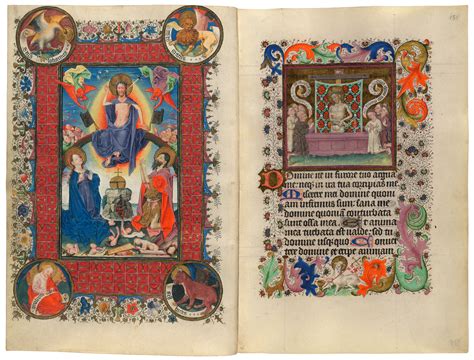 Domine ne in furore tuo arguas
me neq in ira tua corripias me
Miserere mei domine quoni
am infirmus sum: sana me
domine quoniam conturbata
sunt ossa mea. Et anima
mea turbata est valde: sed tu
domine usquequo
Convertere domine et eripe animam